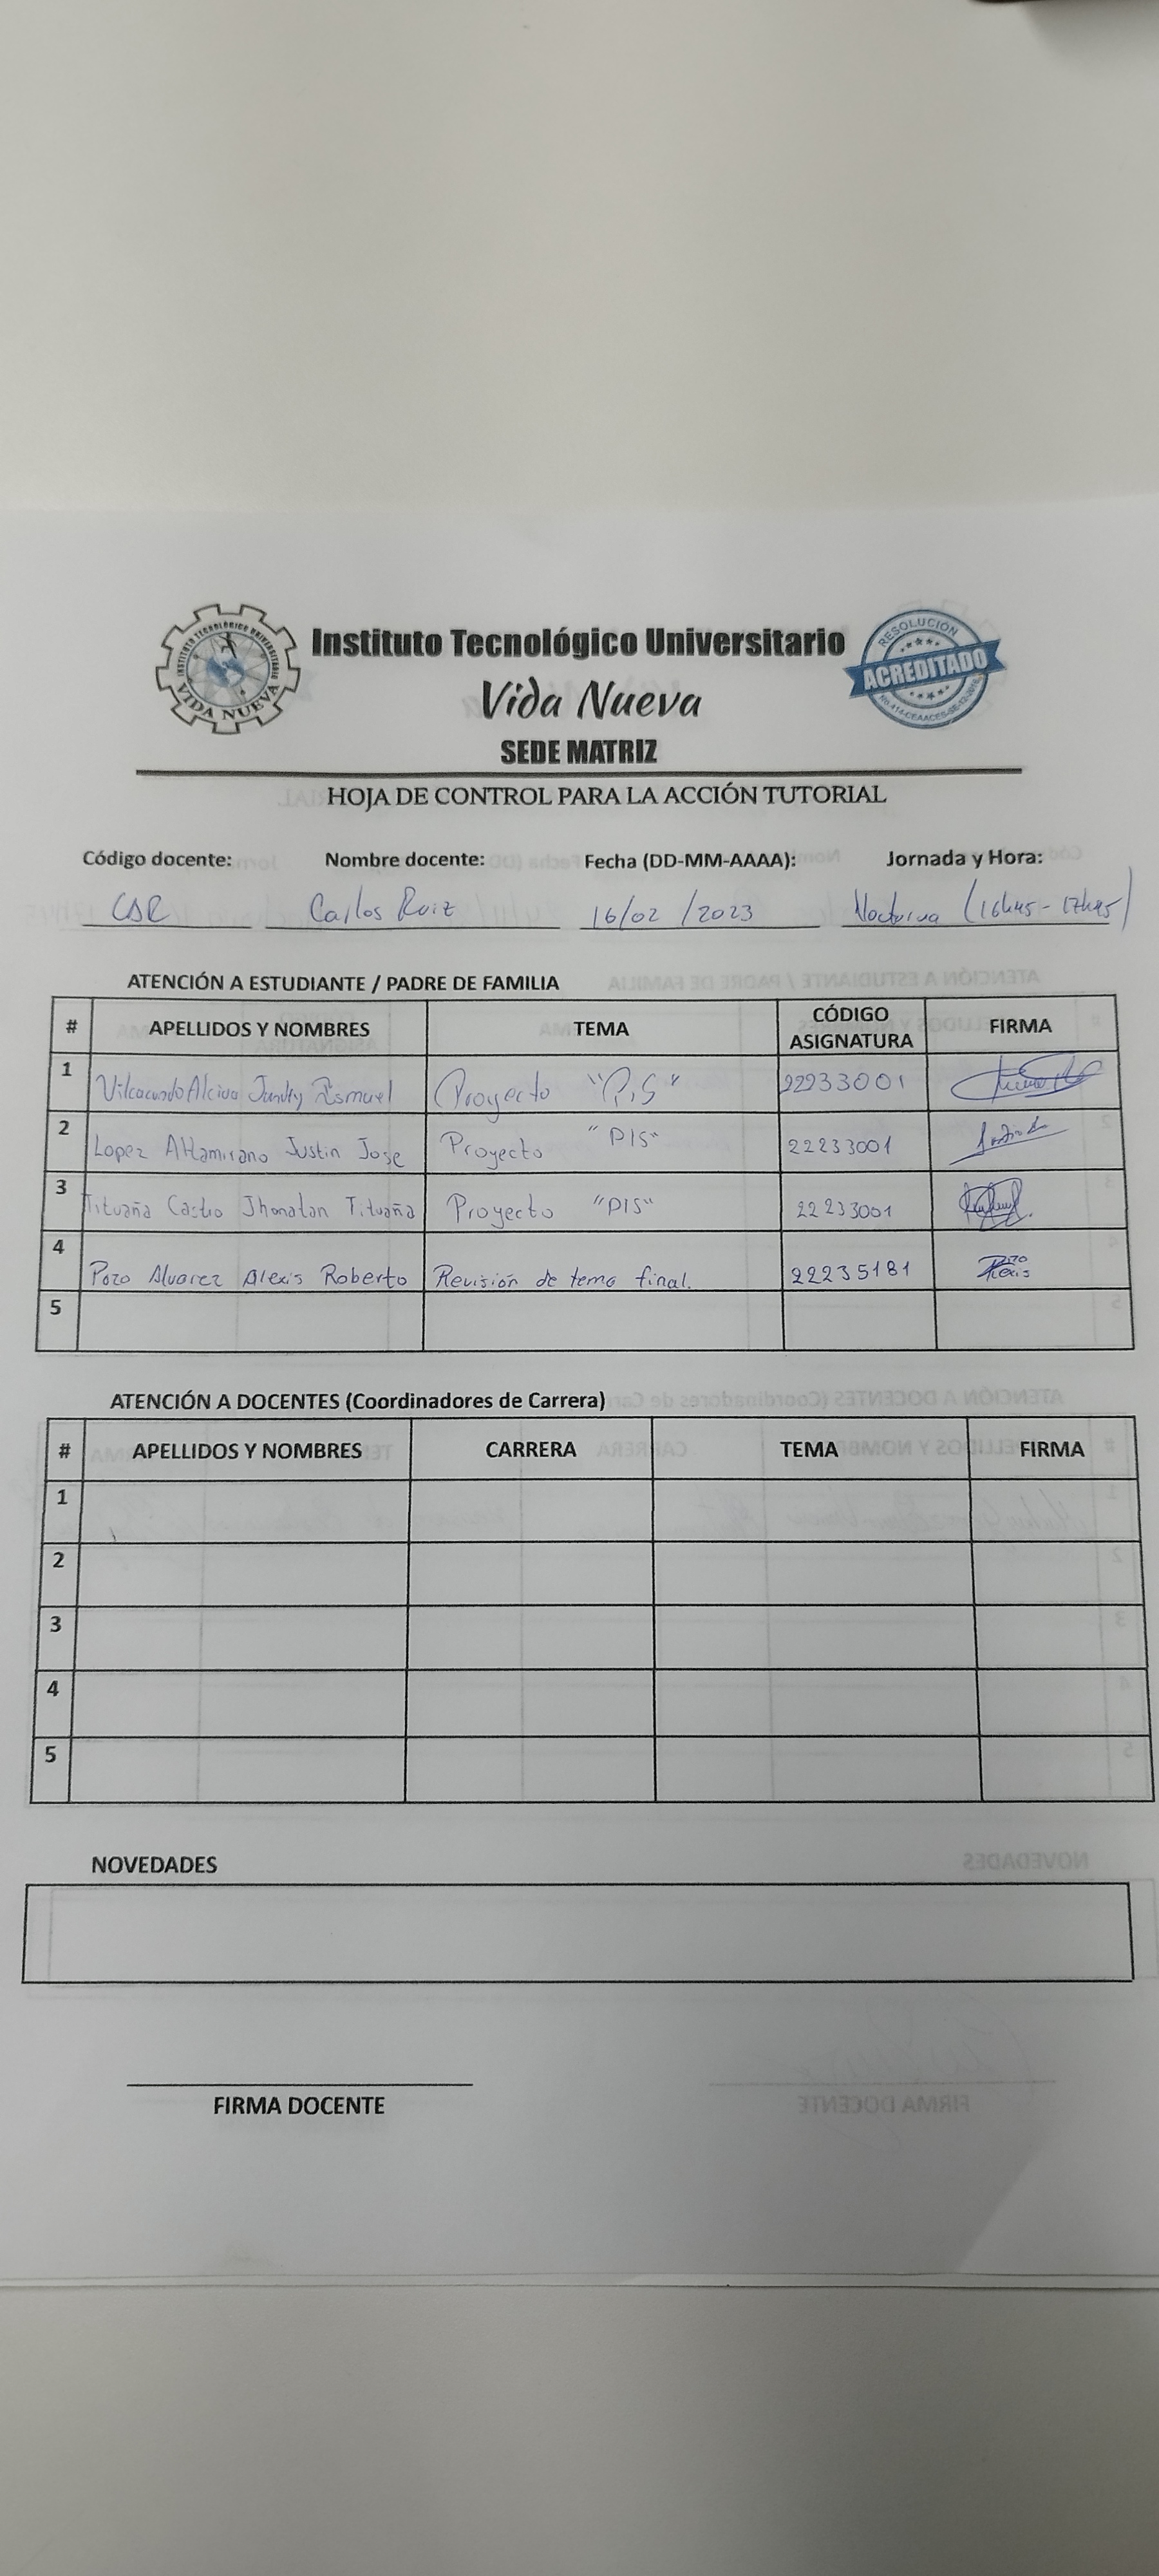 Instituto Tecnológico Universitario
Vida Nueva
SEDE MATRIZ
INSTITUTO TECNOLÓGICO UNIVERSITARIO
VIDA NUEVA
RESOLUCIÓN
ACREDITADO
HOJA DE CONTROL PARA LA ACCIÓN TUTORIAL
Código docente: Nombre docente: Fecha (DD-MM-AAAA): Jornada y Hora:
CSR Carlos Ruiz 16/02/2023 Nocturna (16h45 - 17h45)
ATENCIÓN A ESTUDIANTE / PADRE DE FAMILIA
# APELLIDOS Y NOMBRES TEMA CÓDIGO ASIGNATURA FIRMA
1 Proyecto "P.S" 22233001
2 Lopez Altamirano Justin Jose Proyecto "PIS" 22233001
3 Tituaña Castro Jhonatan Tituaña Proyecto "PIS" 22233001
4 Pozo Alvarez Alexis Roberto Revisión de tema final. 22235181 Pozo Alexis
5
ATENCIÓN A DOCENTES (Coordinadores de Carrera)
# APELLIDOS Y NOMBRES CARRERA TEMA FIRMA
1
2
3
4
5
NOVEDADES
FIRMA DOCENTE